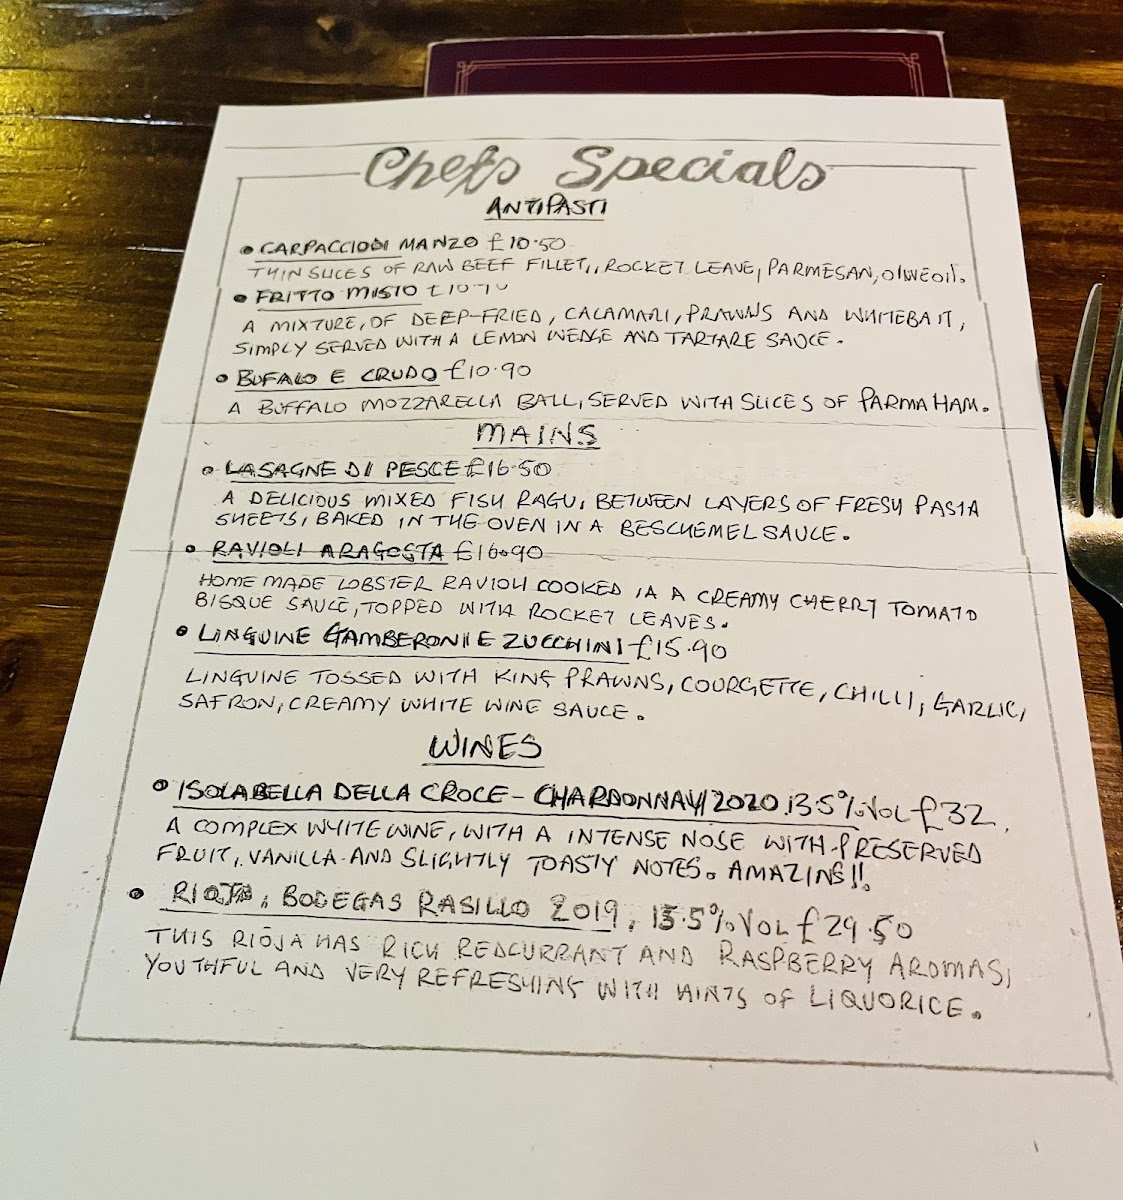 Chefs Specials
ANTIPASTI
• CARPACCIO DI MANZO £10.50
THIN SLICES OF RAW BEEF FILLET,, ROCKET LEAVE, PARMESAN, OLIVE OIL.
• FRITTO MISTO
A MIXTURE, OF DEEP-FRIED, CALAMARI, PRAWNS AND WHITEBAIT,
SIMPLY SERVED WITH A LEMON WEDGE AND TARTARE SAUCE.
• BUFALO E CRUDO £10.90
A BUFFALO MOZZARELLA BALL, SERVED WITH SLICES OF PARMA HAM.
MAINS
• LASAGNE DI PESCE £16.50
A DELICIOUS MIXED FISH RAGU, BETWEEN LAYERS OF FRESH PASTA
SHEETS, BAKED IN THE OVEN IN A BESCHEMEL SAUCE.
• RAVIOLI ARAGOSTA £16.90
HOME MADE LOBSTER RAVIOLI COOKED IA A CREAMY CHERRY TOMATO
BISQUE SAUCE, TOPPED WITH ROCKET LEAVES.
• LINGUINE GAMBERONI E ZUCCHINI £15.90
LINGUINE TOSSED WITH KING PRAWNS, COURGETTE, CHILLI, GARLIC,
SAFRON, CREAMY WHITE WINE SAUCE.
WINES
• ISOLABELLA DELLA CROCE - CHARDONNAY/ 2020. 13.5% VOL £32.
A COMPLEX WHITE WINE, WITH A INTENSE NOSE WITH PRESERVED
FRUIT, VANILLA AND SLIGHTLY TOASTY NOTES. AMAZING!!
• RIOJA, BODEGAS RASILLO 2019, 13.5% VOL £29.50
THIS RIOJA HAS RICH REDCURRANT AND RASPBERRY AROMAS,
YOUTHFUL AND VERY REFRESHING WITH HINTS OF LIQUORICE.